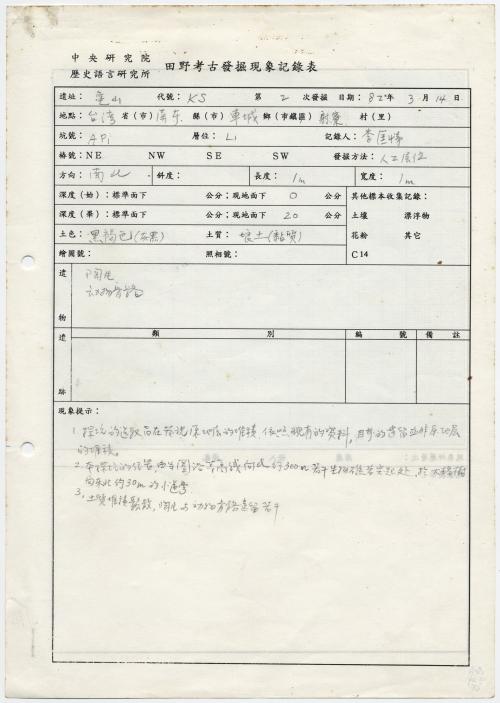 中央研究院
歷史語言研究所
田野考古發掘現象記錄表
遺址：龜山 代號：KS 第2次發掘 日期：82年3月14日
地點：台灣省(市)屏東縣(市)車城鄉(市鎮區)射寮村(里)
坑號：AP1 層位：L1 記錄人：李匡悌
樁號：NE NW SE SW 發掘方法：人工層位
方向：南北 斜度： 長度：1m 寬度：1m
深度(始)：標準面下 公分；現地面下 0 公分 其他標本收集記錄：
深度(畢)：標準面下 公分；現地面下 20 公分 土壤 漂浮物
土色：黑褐色(灰黑) 土質：壤土(黏質) 花粉 其它
繪圖號： 照相號： C14
遺物 陶片
動物骨骼
遺跡 類別 編號 備註
現象提示：
1. 探坑的選取旨在發現原地層的堆積，依照現有的資料，目前的遺留並非原地層
的堆積。
2. 本探坑的位置 沿等高線向 約300m 處，於
向東北約30m的小
3. 土質堆積鬆散，陶片与動物骨骼遺留若干